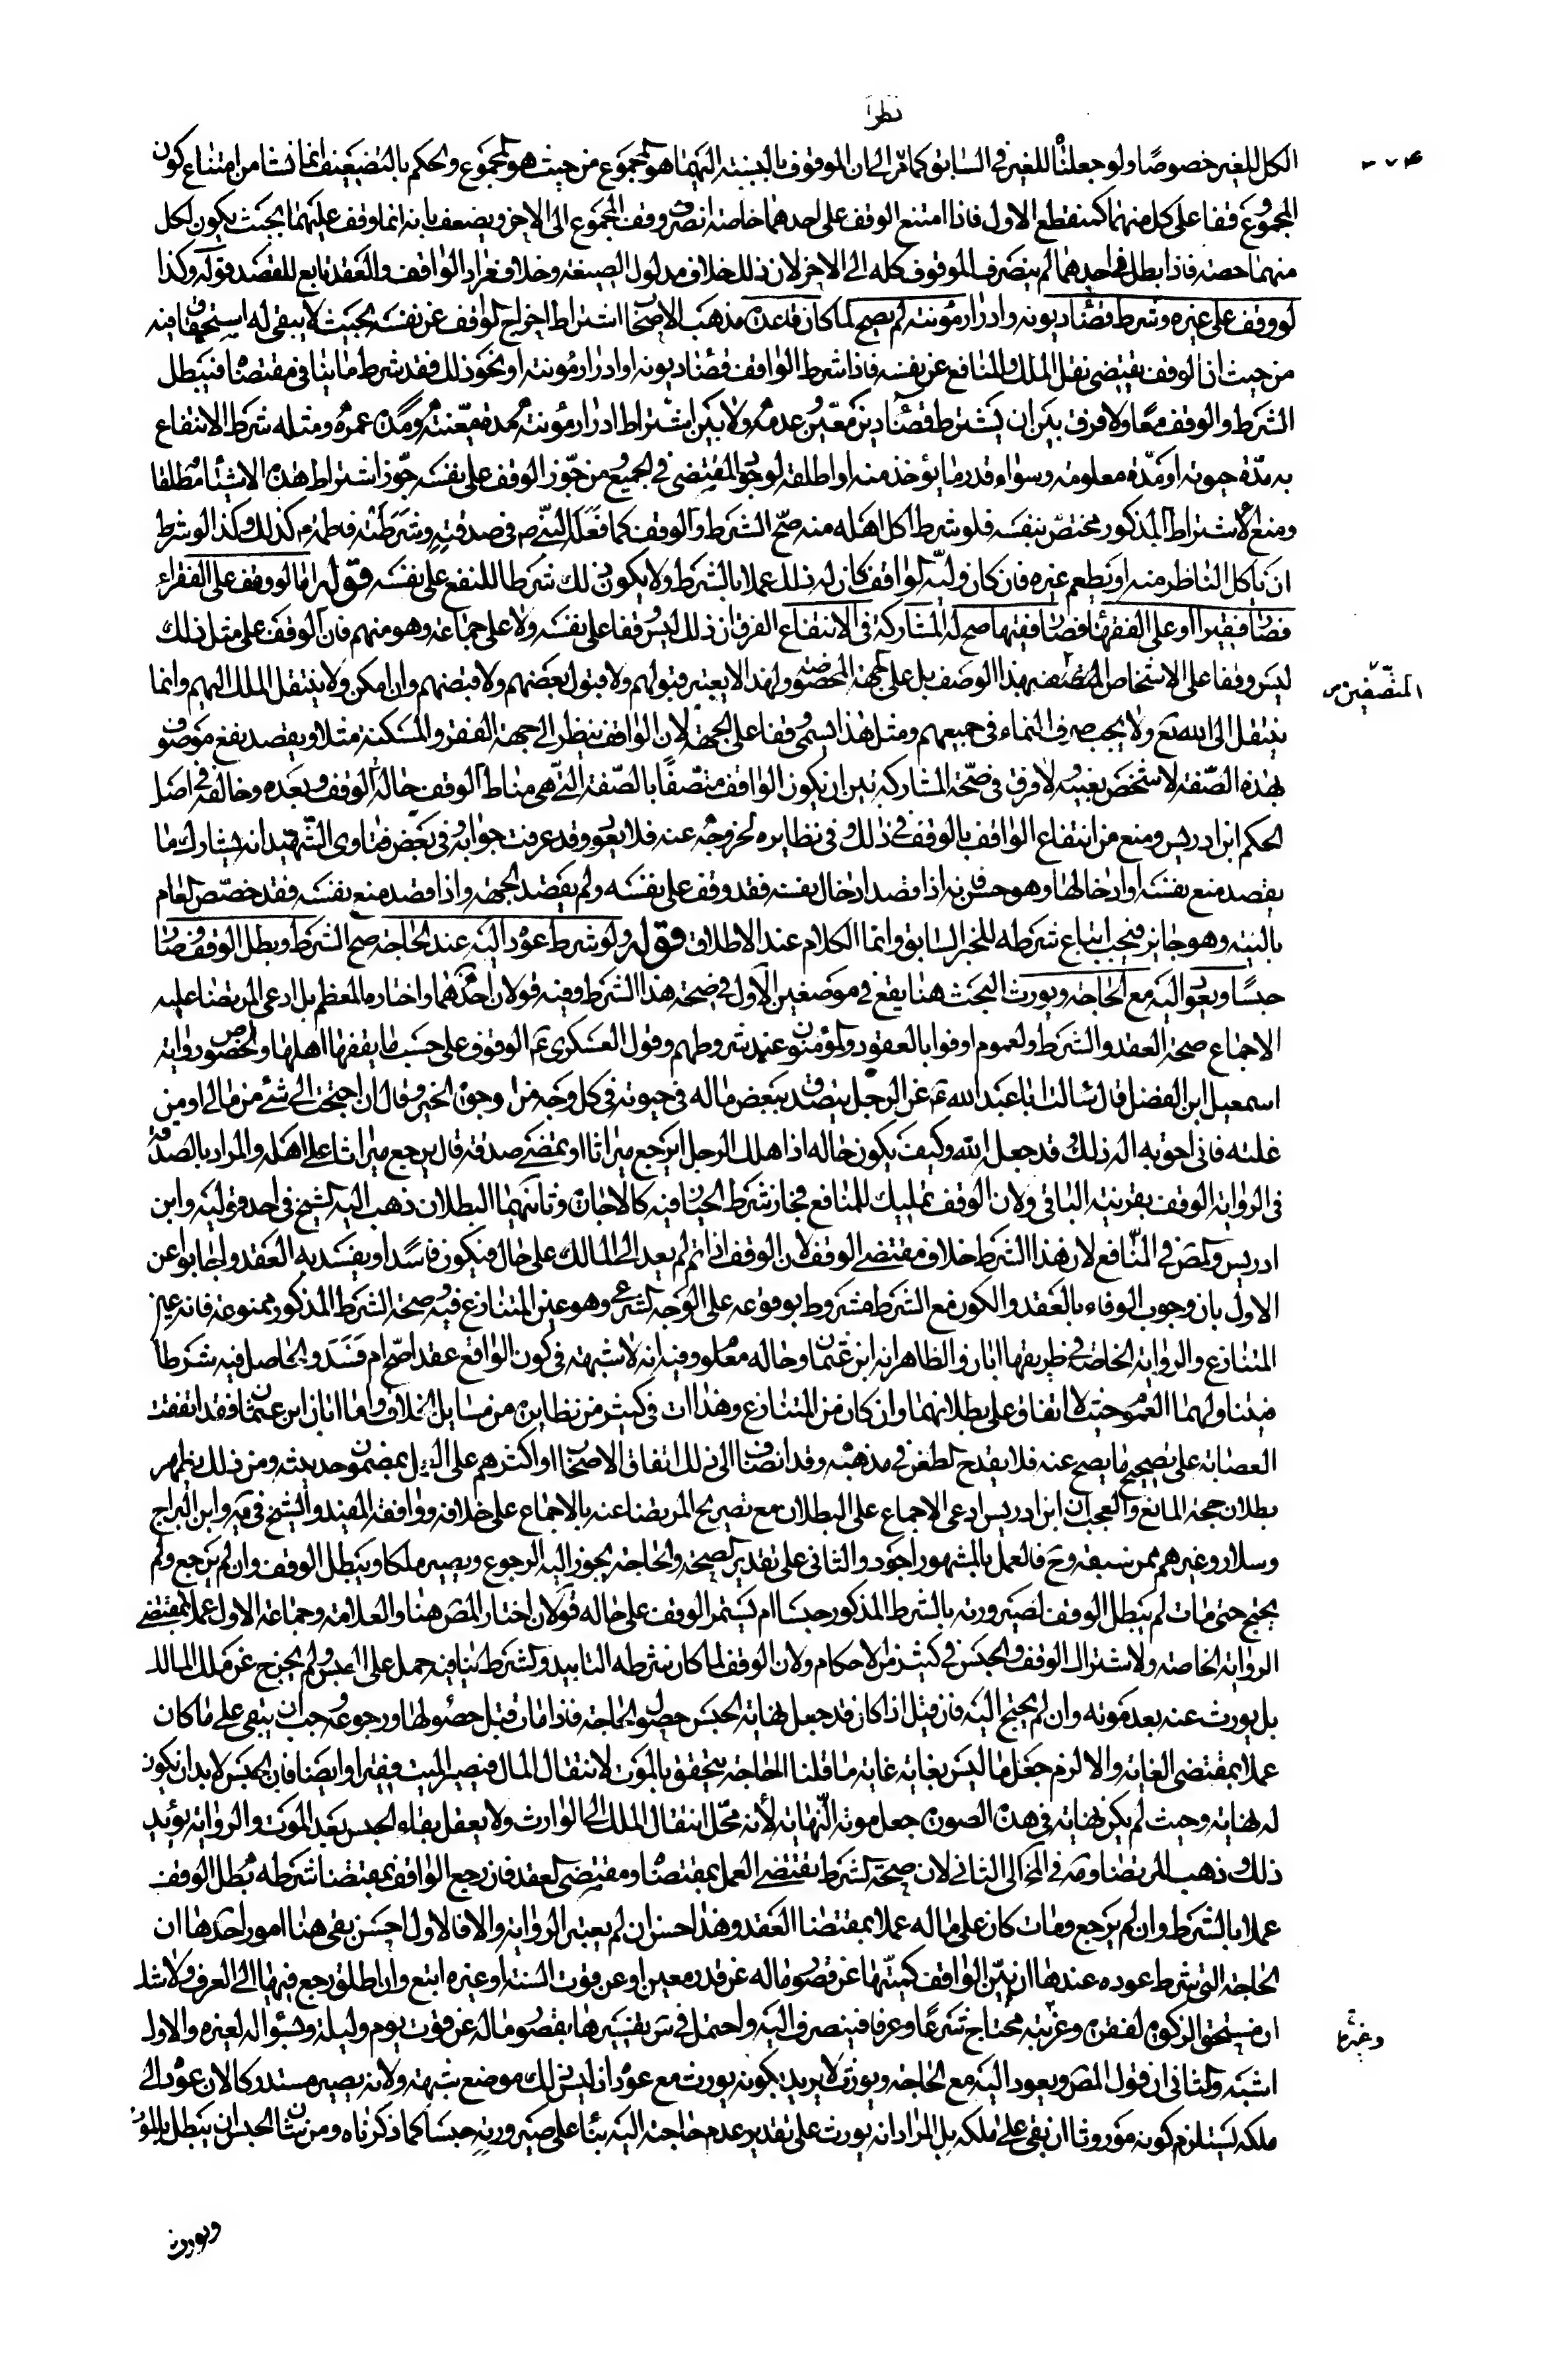 نظرا
الكل للغير خصوصًا ولو جعلناه للغير في السابق كما مر الى ان الموقوف بالنسبة اليهما هو المجموع من حيث هو المجموع والحكم بالتنصيف انما نشا من امتناع كون
المجموع وقفا على كل منهما كمنقطع الاول فاذا امتنع الوقف على احدهما خاصة انصرف وقف المجموع الى الاخر ويضعف بانه انما وقف عليهما بحيث يكون لكل
منهما حصة فاذا بطل في احدهما لم ينصرف الموقوف كله الى الاخر لان ذلك خلاف مدلول الصيغة وخلاف مراد الواقف والعقد تابع للقصد قوله وكذا
لو وقف على غيره وشرط قضاء ديونه وادرار مؤنته لم يصح لما كان قاعدة مذهب الاصحاب اشتراط اخراج الواقف عن نفسه بحيث لا يبقى له استحقاق فيه
من حيث ان الوقف يقتضى نقل الملك والمنافع عن نفسه فاذا شرط الواقف قضاء ديونه او ادرار مؤنته او نحو ذلك فقد شرط ما ينافى مقتضاه فيبطل
الشرط والوقف معًا ولا فرق بين ان يشترط قضاء دين معيّن وعدمه ولا بين اشتراط ادرار مؤنته مدة معيّنة ومدة عمره ومثله شرط الانتفاع
به مدّة حيوته او مدّة معلومة وسواء قدر ما يؤخذ منه او اطلقه لوجود المقتضى في الجميع ومن جوّز الوقف على نفسه جوّز اشتراط هذه الاشياء مطلقا
ومنع الاشتراط المذكور مختصّ بنفسه فلو شرط اكل اهله منه صحّ الشرط والوقف كما فعله النبي ص في صدقته وشرطته فاطمة ع كذلك وكذا لو شرط
ان ياكل الناظر منه او يطعم غيره فان كان وليّه الواقف كان له ذلك عملا بالشرط ولا يكون ذلك شرطا للنفع على نفسه قوله اما لو وقف على الفقراء
فصار فقيرا او على الفقهاء فصار فقيها صح له المشاركة في الانتفاع الفرق ان ذلك ليس وقفا على نفسه ولا على جماعة وهو منهم فان الوقف على مثل ذلك
ليس وقفا على الاشخاص المتصفين بهذا الوصف بل على الجهة المخصوصة ولهذا لا يعتبر قبولهم ولا قبول بعضهم ولا قبضهم وان امكن ولا ينتقل الملك اليهم وانما
المتصفين
ينتقل الى الله تع ولا يجب صرف النماء في جميعهم ومثل هذا يسمى وقفا على الجهة لان الواقف ينظر الى جهة الفقر والمسكنة مثلا ويقصد نفع موصوف
بهذه الصّفة لا شخص بعينه ولا فرق في صحّة المشاركة بين ان يكون الواقف متّصفًا بالصّفة التي هي مناط الوقف حالة الوقف وبعده وخالف في اصل
الحكم ابن ادريس ومنع من انتفاع الواقف بالوقف في ذلك وفي نظايره لخروجه عنه فلا يعود وقد عرفت جوابه وفي بعض فتاوى الشّهيد انه يشارك ما لم
يقصد منع نفسه او ادخالها وهو حسن فانه اذا قصد ادخال نفسه فقد وقف على نفسه ولم يقصد الجهة واذا قصد منع نفسه فقد خصّص العام
بالنية وهو جايز فيجب اتباع شرطه للخبر السابق وانما الكلام عند الاطلاق قوله ولو شرط عوده اليه عند الحاجة صح الشرط وبطل الوقف وصار
حبسًا ويعود اليه مع الحاجة ويورث البحث هنا يقع في موضعين الاول في صحة هذا الشرط وفيه قولان احدهما واختاره المعظم بل ادعى المرتضى عليه
الاجماع صحة العقد والشرط ولعموم اوفوا بالعقود والمؤمنون عند شروطهم وقول العسكرى ع الوقوف على حسب ما يقفها اهلها ولخصوص رواية
اسمعيل ابن الفضل قال سالت ابا عبد الله ع عن الرجل يتصدق ببعض ماله في حيوته في كل وجه من وجوه الخير وقال ان احتجت الى شئ من مالى او من
غلته فانى احق به اله ذلك وقد جعله لله وكيف يكون حاله اذا هلك الرجل ايرجع ميراثا او يمضى صدقة قال يرجع ميراثا على اهله والمراد بالصدقة
في الرواية الوقف بقرينة الباقى ولان الوقف تمليك للمنافع فجاز شرط الخيار فيه كالاجارة وثانيهما البطلان ذهب اليه الشيخ في احد قوليه وابن
ادريس والمص في النافع لان هذا الشرط خلاف مقتضى الوقف لان الوقف اذا تم لم يعد الى المالك على حال فيكون فاسدا ويفسد به العقد واجابوا عن
الاول بان وجوب الوفاء بالعقد والكون مع الشرط مشروط بوقوعه على الوجه الشرعى وهو عين المتنازع فيه وصحة الشرط المذكور ممنوعة فانه عين
المتنازع والرواية الخاصة في طريقها ابان والظاهر انه ابن عثمان وحاله معلوم وفيه انه لا شبهة في كون الواقع عقدا صح ام فسد والحاصل فيه شرطا
فيتناولهما العموم حيث لا اتفاق على بطلانهما وان كان من المتنازع وهذا ات في كثير من نظايره من مسايل الخلاف واما ابان ابن عثمان فقد اتفقت
العصابة على تصحيح ما يصح عنه فلا يقدح الطعن في مذهبه وقد انضاف الى ذلك اتفاق الاصحاب او اكثرهم على العمل بمضمون حديثه ومن ذلك يظهر
بطلان حجة المانع والعجب ان ابن ادريس ادعى الاجماع على البطلان مع تصريح المرتضى عنه بالاجماع على خلافه ووافقه المفيد والشيخ في يه وابن البراج
وسلار وغيرهم ممن سبقه وح فالعمل بالمشهور اجود والثانى على تقدير الصحة والحاجة يجوز اليه الرجوع ويصير ملكا ويبطل الوقف وان لم يرجع ولم
يحتج حتى مات لم يبطل الوقف لصيرورته بالشرط المذكور حبسا ام يستمر الوقف على حاله قولان اختار المص هنا والعلامة وجماعة الاول عملا بمقتضى
الرواية الخاصة ولاشتراك الوقف والحبس في كثير من الاحكام ولان الوقف لما كان شرطه التابيد والشرط ينافيه حمل على الحبس ولم يخرج عن ملك المالك
بل يورث عنه بعد موته وان لم يحتج اليه فان قيل اذا كان قد جعل نهاية الحبس حصول الحاجة فاذا مات قبل حصولها ورجوعه وجب ان يبقى على ما كان
عملا بمقتضى الغاية والا لزم جعل ما ليس بغاية غاية ما قلنا الحاجة يتحقق بالموت لانتقال المال فيصير الميت فقيرا وايضا فان الحبس لابد ان يكون
له نهاية وحيث لم يكن نهاية في هذه الصورة جعل موته النهاية لأنه محل انتقال الملك الى الوارث ولا يعقل بقاء الحبس بعد الموت والرواية تؤيد
ذلك وذهب المرتضى ومه في المخ الى الثانى لان صحة الشرط يقتضى العمل بمقتضاه ومقتضى العقد فان رجع الواقف بمقتضى شرطه بطل الوقف
عملا بالشرط وان لم يرجع ومات كان على حاله عملا بمقتضى العقد وهذا حسن ان لم يعتبر الرواية والا فالاول احسن بقى هنا امور احدها ان
الحاجة التى شرط عوده عندها ان بيّن الواقف كميّتها عن قصور ماله عن قدر معين او عن قوت السنة او غيره اتبع وان اطلق رجع فيها الى العرف ولا شك
ان مستحق الزكوة لفقره وغريمه محتاج شرعًا وعرفا فينصرف اليه واحتمل في س تفسيرها بقصور ماله عن قوت يوم وليلة وبسؤاله لغيره والاول
وغيره
اشبه والثانى ان قول المص ويعود اليه مع الحاجة ويورث لا يريد بكونه يورث مع عوده اذ ليس ذلك موضع شبهة ولانه يصير مستدركا لان عوده الى
ملكه يستلزم كونه موروثا ان بقى على ملكه بل المراد انه يورث على تقدير عدم حاجته اليه بناء على صيرورته حبسا كما ذكرناه ومن شان الحبس ان يبطل بالموت
ويورث